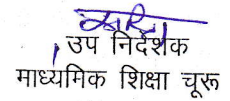 उप निर्देशक
माध्यमिक शिक्षा चूरू